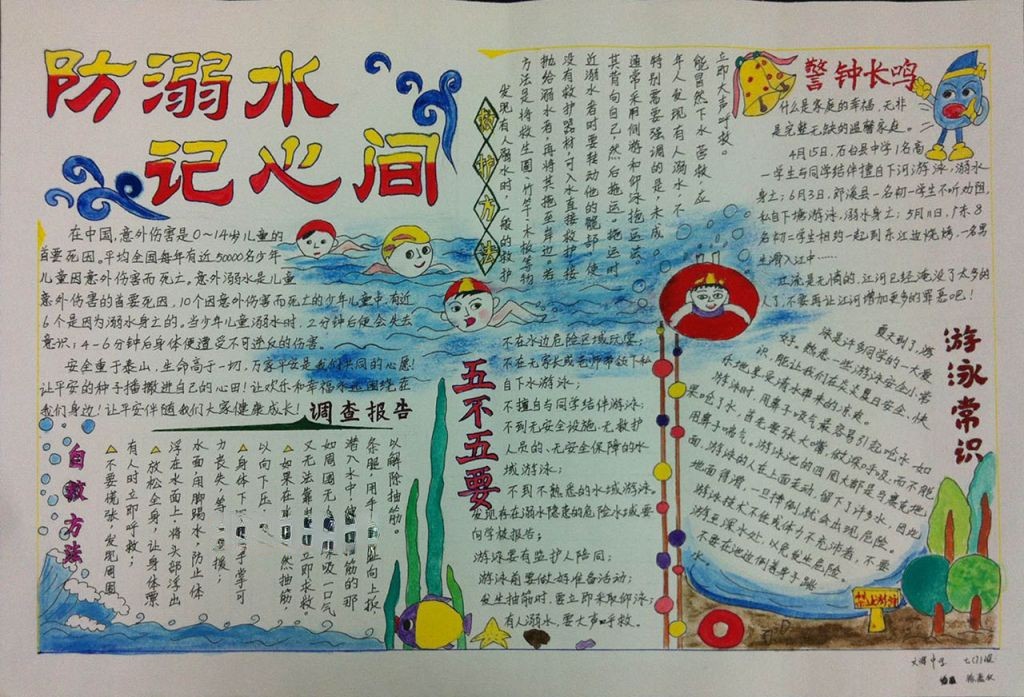 防溺水
记心间
在中国，意外伤害是0～14岁儿童的
首要死因。平均全国每年有近50000名少年
儿童因意外伤害而死亡。意外溺水是儿童
意外伤害的首要死因，10个因意外伤害而死亡的少年儿童中，有近
6个是因为溺水身亡的。当少年儿童溺水时，2分钟后便会失去
意识；4-6分钟后身体便遭受不可逆反的伤害。
安全重于泰山，生命高于一切，万家平安是我们共同的心愿！
让平安的种子播撒进自己的心田！让欢乐和幸福永远围绕在
我们身边！让平安伴随我们大家健康成长！
调查报告
自救方法
△不要慌张，发现周围
有人时立即呼救；
△放松全身，让身体漂
浮在水面上，将头部浮出
水面，用脚踢水，防止体
力丧失，等
△身体下
以向下压
△如果在
又无法靠
如周围无
潜入水中
条腿用手
以解除抽筋。
救护方法
发现有人溺水时，一般的救护
方法是将救生圈、竹竿、木板等物
抛给溺水者，再将其拖至岸边；若
没有救护器材，可入水直接救护。接
近溺水者时要转动他的髋部，使
其背向自己，然后拖运。拖运时
通常采用侧游和仰泳拖运法。
特别需要强调的是，未成
年人发现有人溺水，不
能冒然下水营救，应
立即大声呼救。
五不五要
不在水边危险区域玩耍；
不在无家长或老师带领下私
自下水游泳；
不擅自与同学结伴游泳；
不到无安全设施、无救护
人员的、无安全保障的水
域游泳；
不到不熟悉的水域游泳。
发现存在溺水隐患的危险水域要
向学校报告；
游泳要有监护人陪同；
游泳前要做好准备活动；
发生抽筋时，要立即采取仰泳；
有人溺水，要大声呼救。
警钟长鸣
什么是家庭的幸福，无非
是完整无缺的温馨家庭。
4月15日，石台县中学1名高
一学生与同学结伴擅自下河游泳，溺水
身亡；6月3日，郎溪县一名初一学生不听劝阻，
私自下塘游泳，溺水身亡；5月11日，广东8
名初二学生相约一起到东江边烧烤，一名男
生滑入江中……
江流是无情的，江河已经淹没了太多的
人了，不要再让江河增加更多的罪恶吧！
游泳常识
夏天到了，游
泳是许多同学的一大爱
好，熟悉一些游泳安全小常
识，能让我们在炎炎夏日安全、快
乐地享受清水带来的凉爽。
游泳时，用鼻子吸气最容易引起呛水，如
果呛了水，首先要张大嘴，做深呼吸，而不能
用鼻子喘气。游泳池的四周大都是马赛克地
面，游泳的人在上面走动，留了许多水，因此
地面很滑，一旦摔倒，就会出现危险。
游泳技术不佳或体力不充沛者，不要
游至深水处，以免发生危险。
不要在池边倒着身子跳
水。
禁止游泳